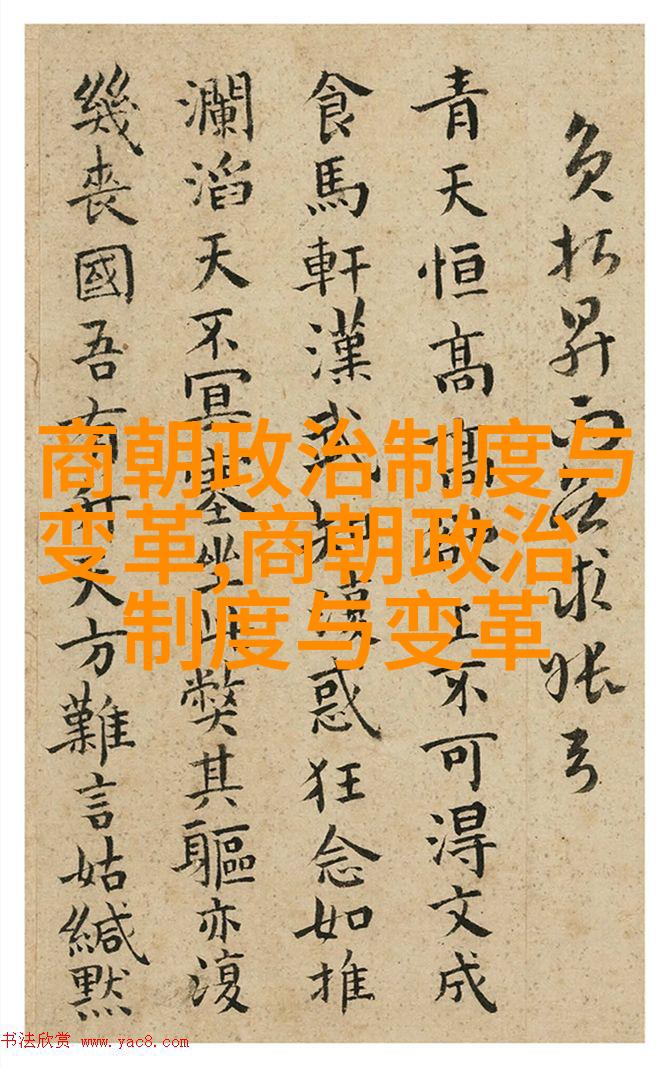 昇 求
青天恒高高欲上不可得文成
食馬軒漢武惑狂念如推
瀾滔天不冥塞坐弊其軀亦復
幾喪國吾有天方難言姑緘默
商朝政治制度与
变革,商朝政治
制度与变革
书法欣赏 www.yac8.com